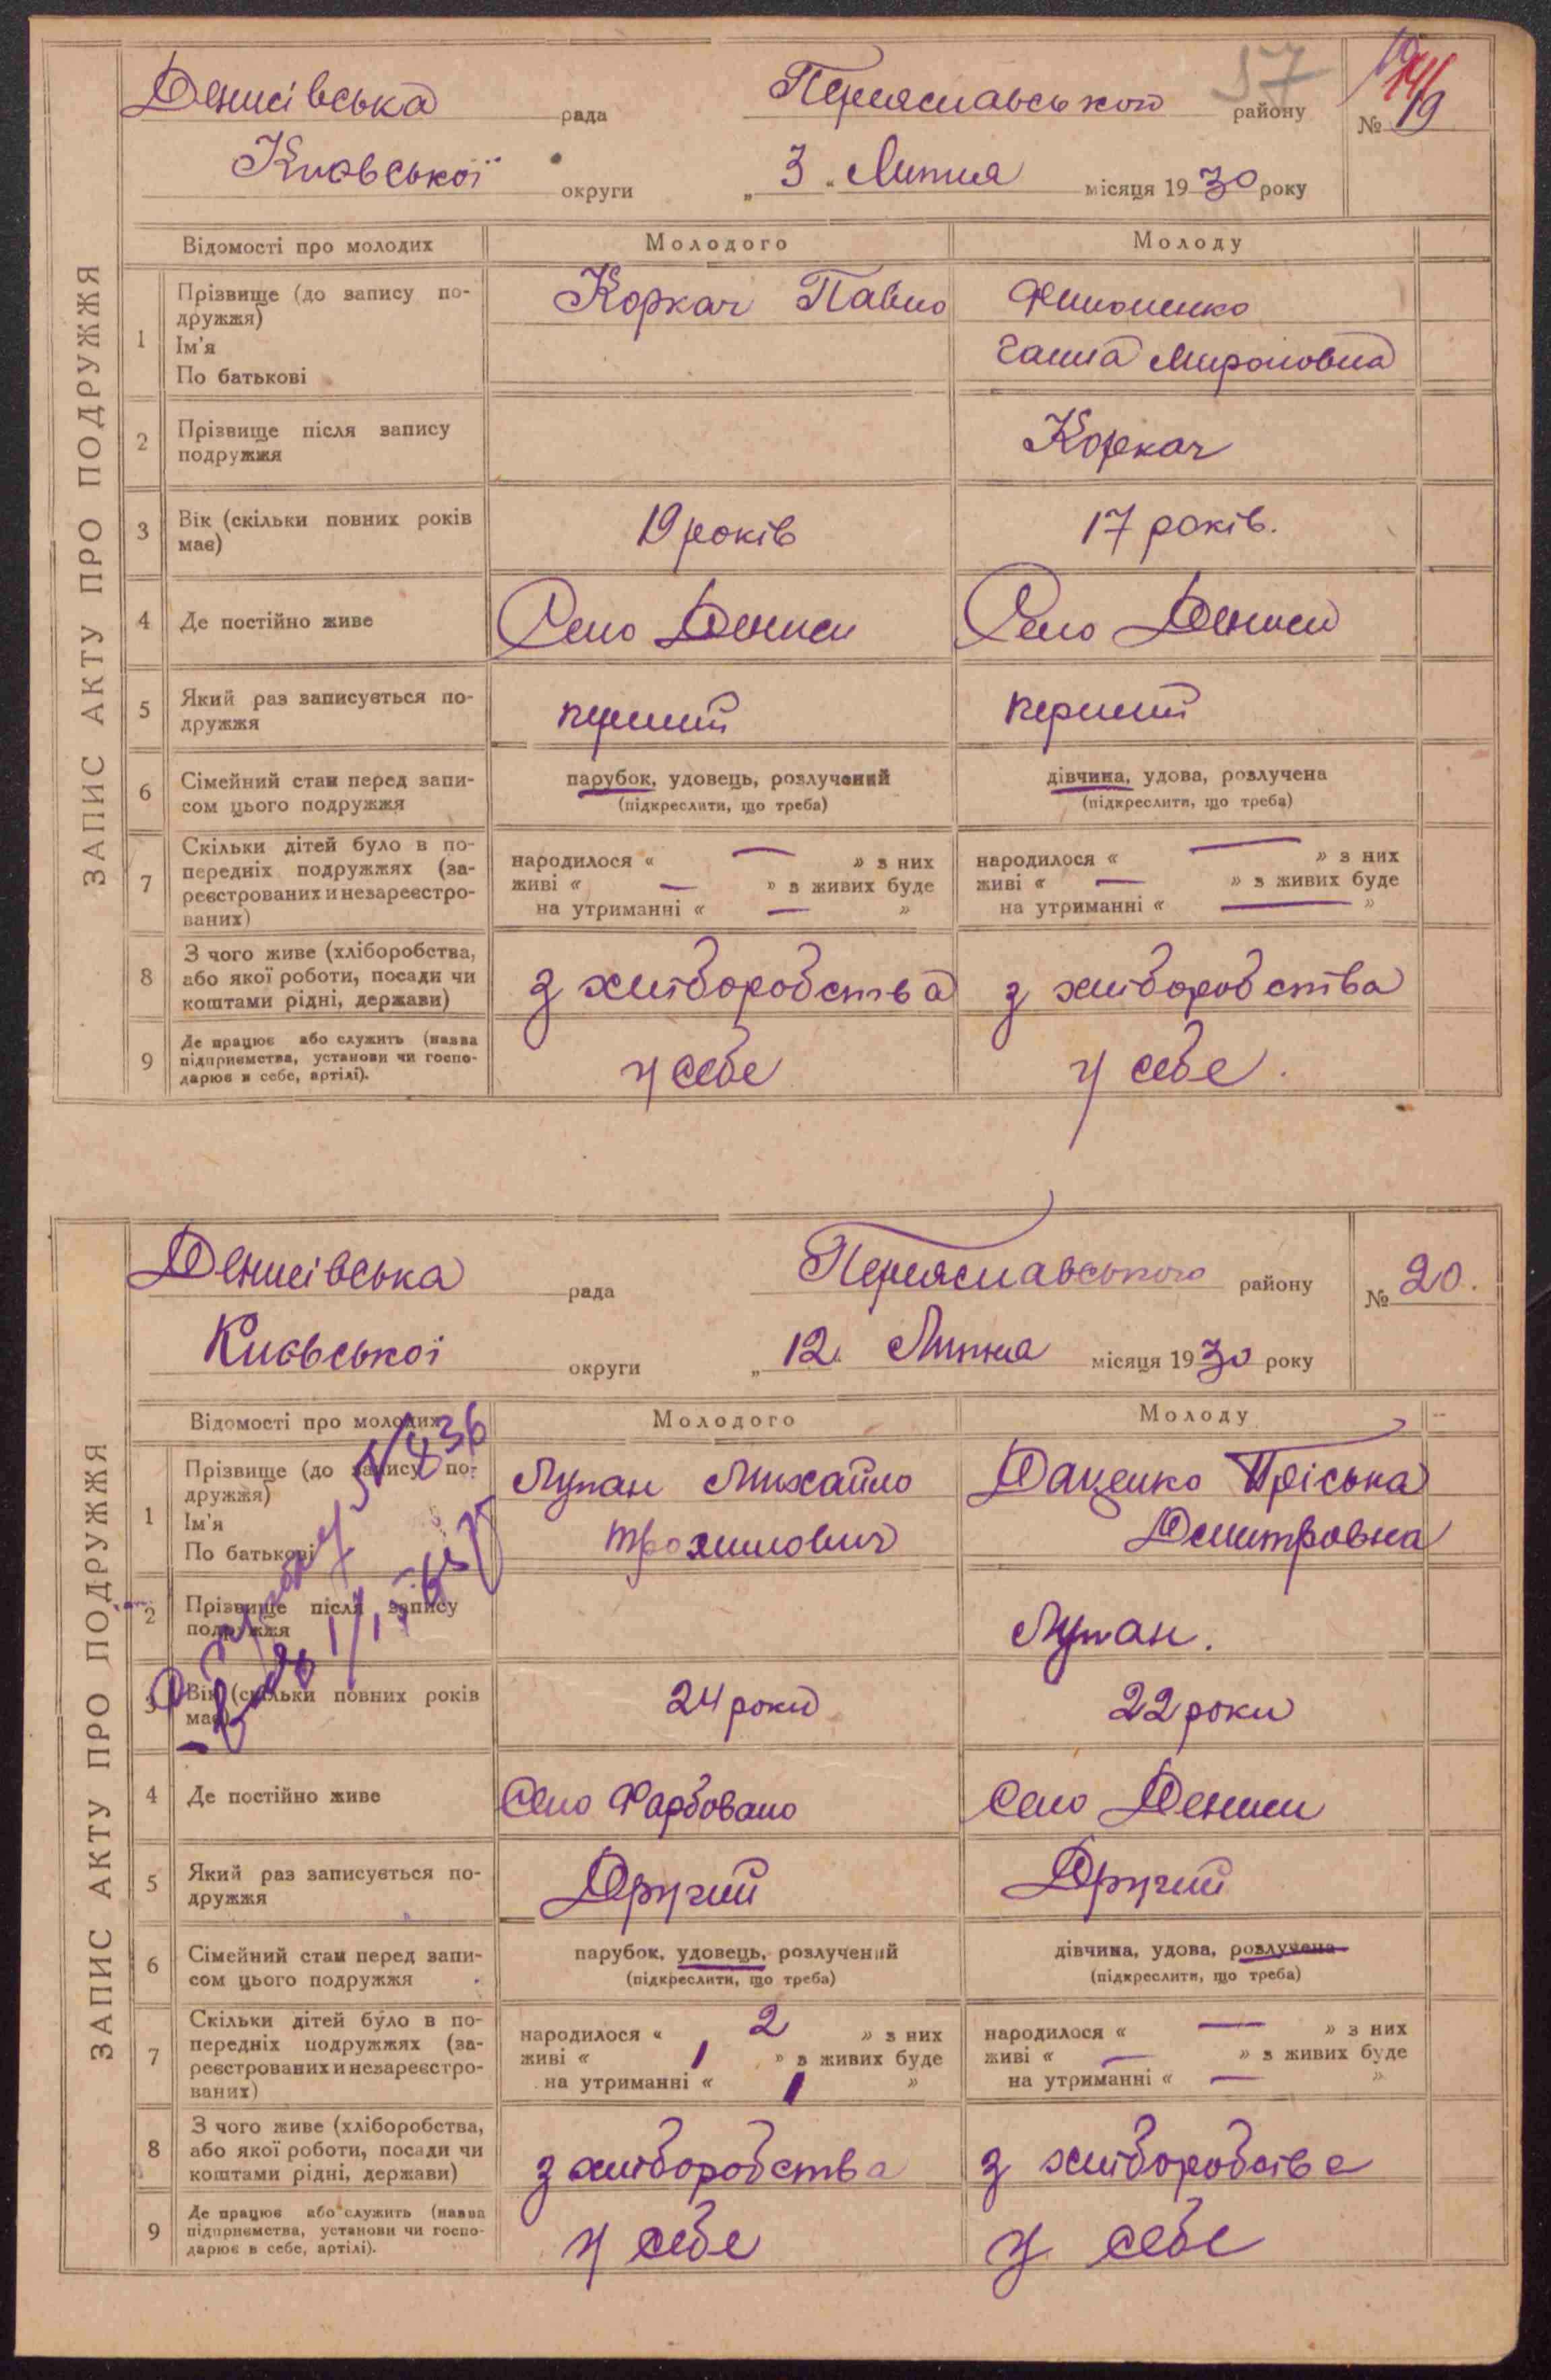 57
Денисівська рада Переяславського району № 19
Києвської округи „ 3 „ Липня місяця 1930 року
ЗАПИС АКТУ ПРО ПОДРУЖЖЯ
Відомості про молодих Молодого Молоду
1 Прізвище (до запису по-
дружжя)
Ім'я
По батькові
Коркач Павло
Филоненко
Ганна Мироновна
2 Прізвище після запису
подружжя
Коркач
3 Вік (скільки повних років
має)
19 років
17 років.
4 Де постійно живе
Село Дениси
Село Дениси
5 Який раз записується по-
дружжя
перший
перший
6 Сімейний стан перед запи-
сом цього подружжя
парубок, удовець, розлучений
(підкреслити, що треба)
дівчина, удова, розлучена
(підкреслити, що треба)
7 Скільки дітей було в по-
передніх подружжях (за-
реєстрованих и незареєстро-
ваних)
народилося « — » з них
живі « — » з живих буде
на утриманні « — »
народилося « — » з них
живі « — » з живих буде
на утриманні « — »
8 З чого живе (хліборобства,
або якої роботи, посади чи
коштами рідні, держави)
з хліборобства
з хліборобства
9 Де працює або служить (назва
підприємства, установи чи госпо-
дарює в себе, артілі).
у себе
у себе.
Денисівська рада Переяславського району № 20.
Києвської округи „ 12. Липня місяця 1930 року
ЗАПИС АКТУ ПРО ПОДРУЖЖЯ
Відомості про молодих Молодого Молоду
1 Прізвище (до запису по-
дружжя)
Ім'я
По батькові
Лупан Михайло
Трохимович
Даценко Пріська
Дмитровна
2 Прізвище після запису
подружжя
Лупан.
3 Вік (скільки повних років
має)
24 роки
22 роки
4 Де постійно живе
Село Фарбовано
Село Дениси
5 Який раз записується по-
дружжя
Другий
Другий
6 Сімейний стан перед запи-
сом цього подружжя
парубок, удовець, розлучений
(підкреслити, що треба)
дівчина, удова, розлучена
(підкреслити, що треба)
7 Скільки дітей було в по-
передніх подружжях (за-
реєстрованих и незареєстро-
ваних)
народилося « 2 » з них
живі « 1 » з живих буде
на утриманні « 1 »
народилося « — » з них
живі « — » з живих буде
на утриманні « — »
8 З чого живе (хліборобства,
або якої роботи, посади чи
коштами рідні, держави)
з хліборобства
з хліборобсіва
9 Де працює або служить (назва
підприємства, установи чи госпо-
дарює в себе, артілі).
у себе
у себе